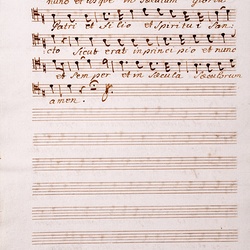 nunc et usque in saeculum gloria
Patri et Filio et Spiritui San
icto Sicut erat in principio et nunc
et Semper et in Saecula Saeculorum
amen.